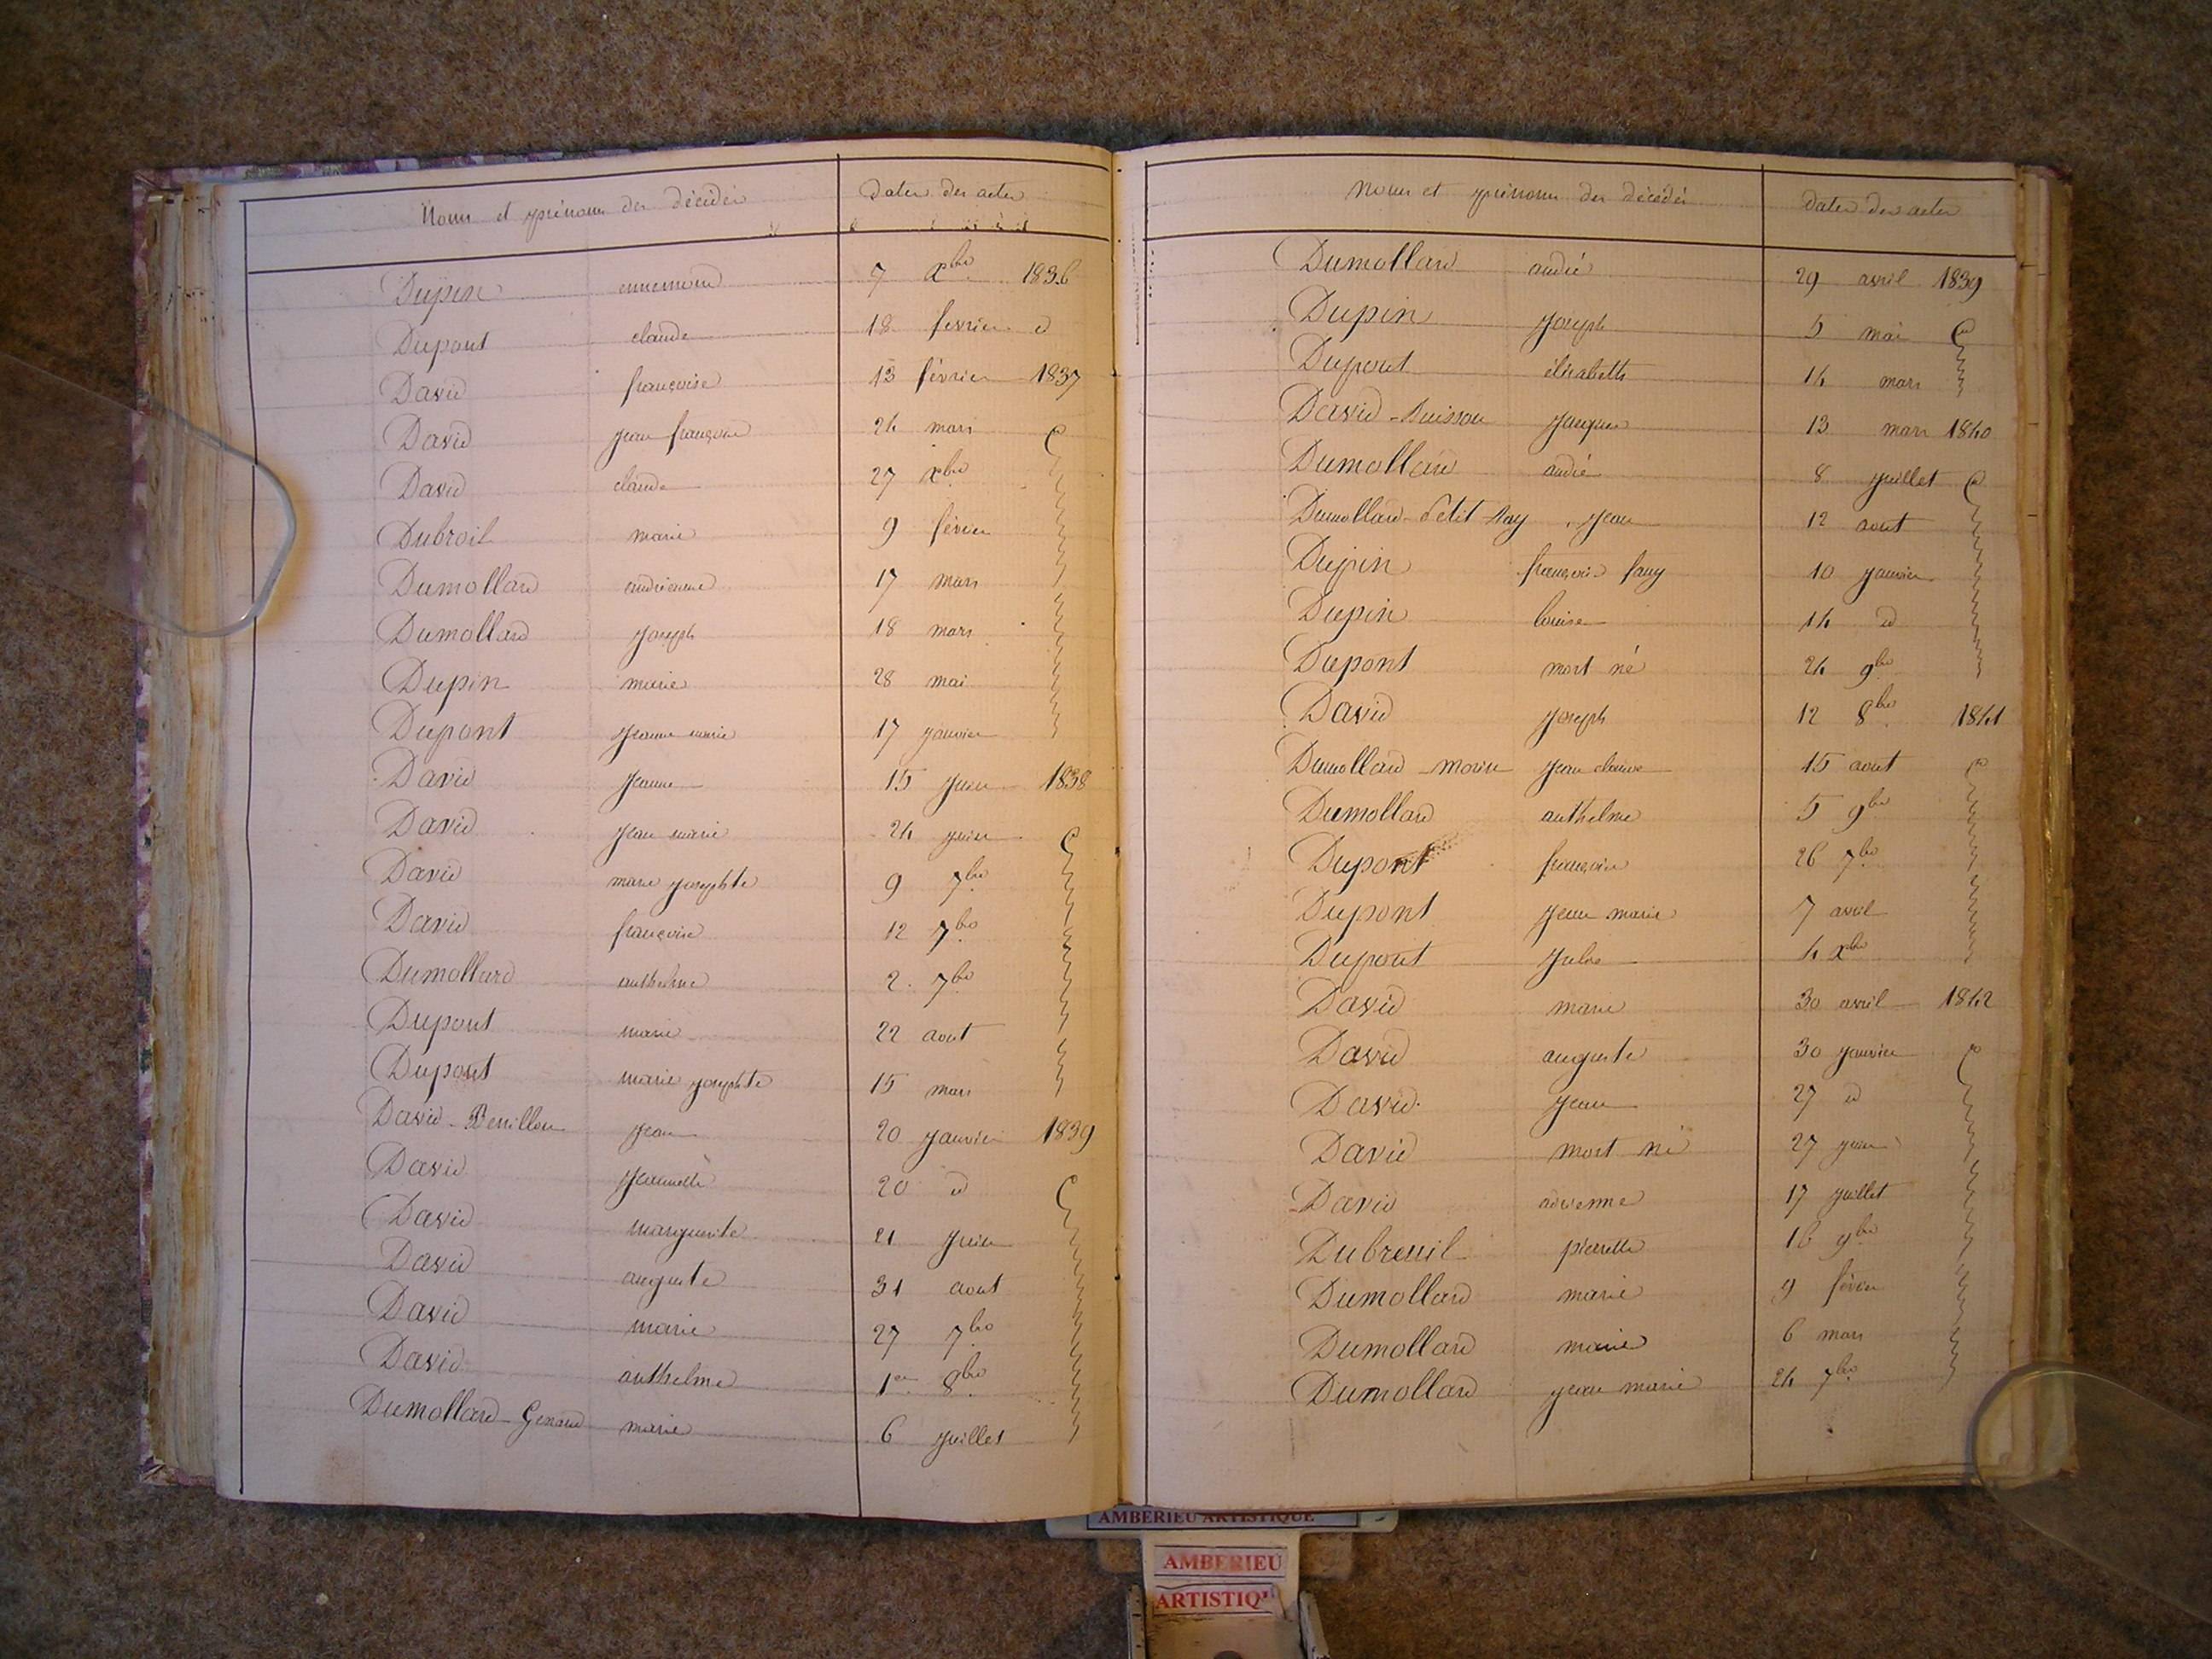 Noms et prénoms des décédés Dates des actes
Dupin ennemond 7 Xbre 1836
Dupont claude 18 fevrier d
David françoise 13 février 1837
David jean françois 24 mars
David claude 27 xbre
Dubroil marie 9 février
Dumollard andréanne 17 mars
Dumollard joseph 18 mars
Dupin marie 28 mai
Dupont jeanne marie 17 janvier
David jeanne 15 juin 1838
David jean marie 24 juin
David marie josephte 9 7bre
David françoise 12 7bre
Dumollard anthelme 2 7bre
Dupont marie 22 aout
Dupont marie josephte 15 mars
David - Benillon jean 20 janvier 1839
David jeannette 20 d
David marguerite 21 juin
David auguste 31 aout
David marie 27 7bre
David anthelme 1er 8bre
Dumollard - Genaud marie 6 juillet
Noms et prénoms des décédés dates des actes
Dumollard andré 29 avril 1839
Dupin joseph 5 mai
Dupont élisabeth 14 mars
David - Buisson jacques 13 mars 1840
Dumollard andré 8 juillet
Dumollard - Petit jean 12 aout
Dupin françois fany 10 janvier
Dupin louise 14 d
Dupont mort né 24 9bre
David joseph 12 8bre 1841
Dumollard - morin jean claude 15 aout
Dumollard anthelme 5 9bre
Dupont françoise 26 7bre
Dupont jean marie 7 avril
Dupont jules 4 xbre
David marie 30 avril 1842
David auguste 30 janvier
David jean 27 d
David mort né 27 juin
David adrienne 17 juillet
Dubreuil pierrette 16 9bre
Dumollard marie 9 février
Dumollard marie 6 mars
Dumollard jean marie 24 7bre
AMBERIEU ARTISTIQUE
AMBERIEU
ARTISTIQU